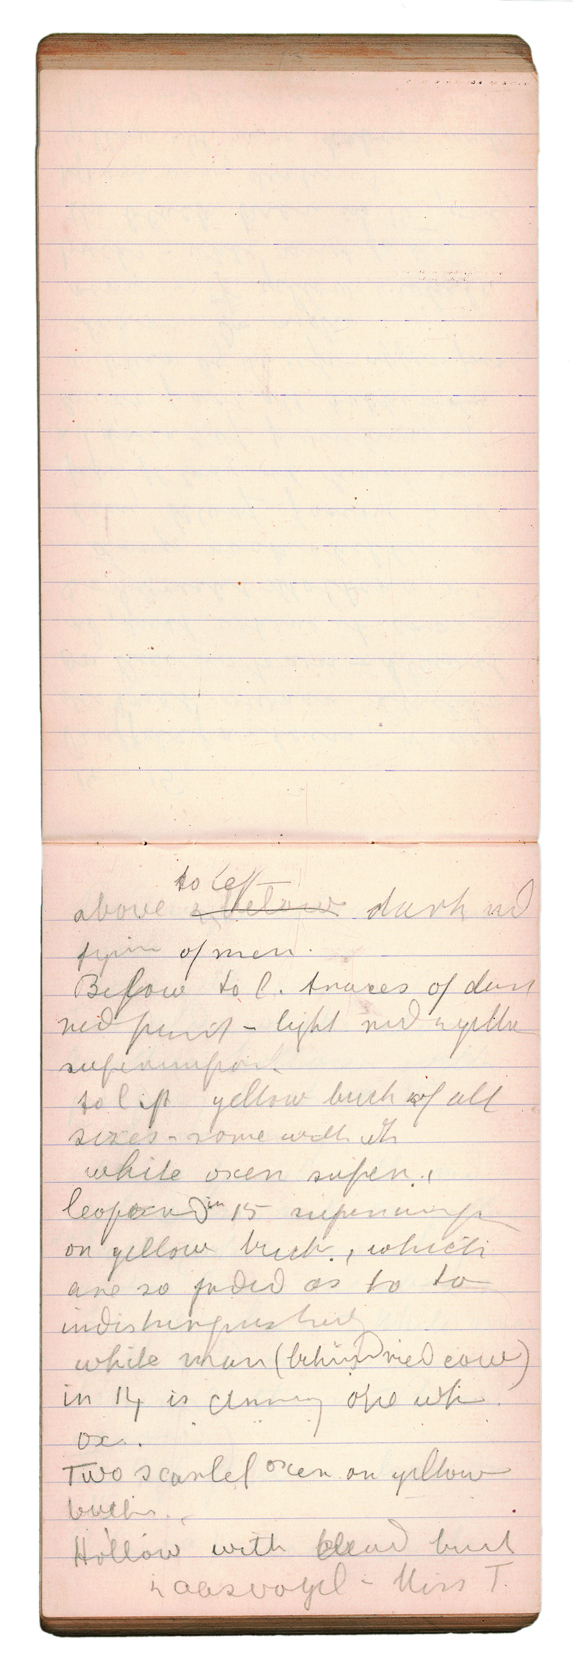 to left
above below dark red
of men.
Below to l. traces of dark
red paint - light red
superimpos.
to left yellow buck of all
sizes - some with wh
white oxen super.,
leopard in 15 superimp
on yellow buck, which
are so faded as to to
indistinguishable
white man (behind red cow)
in 14 is driving one wh.
ox.
Two scarlet oxen on yellow
bucks.
Hollow with dead buck
aasvogel - Miss T.